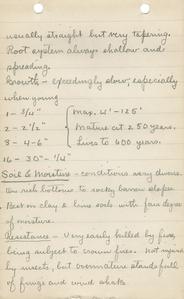 usually straight but very tapering.
Root system always shallow and
spreading.
Growth - exceedingly slow, especially
when young
1 - 3/4" Max. 4' - 125'
2 - 2 1/2" Mature at 250 years.
3 - 4-6" Lives to 600 years.
16 - 30" - 1/4"
Soil & Moisture - conditions very diverse.
rich bottoms to rocky barren slopes
Best on clay & lime soils with fair degree
of moisture.
Resistance - Very easily killed by fire,
being subject to crown fires. Not injured
by insects, but overmature stands full
of fungi and wind shake